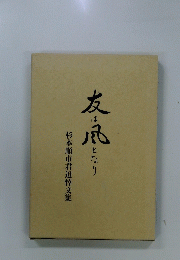 友は風となり
杉本順市君追悼文集